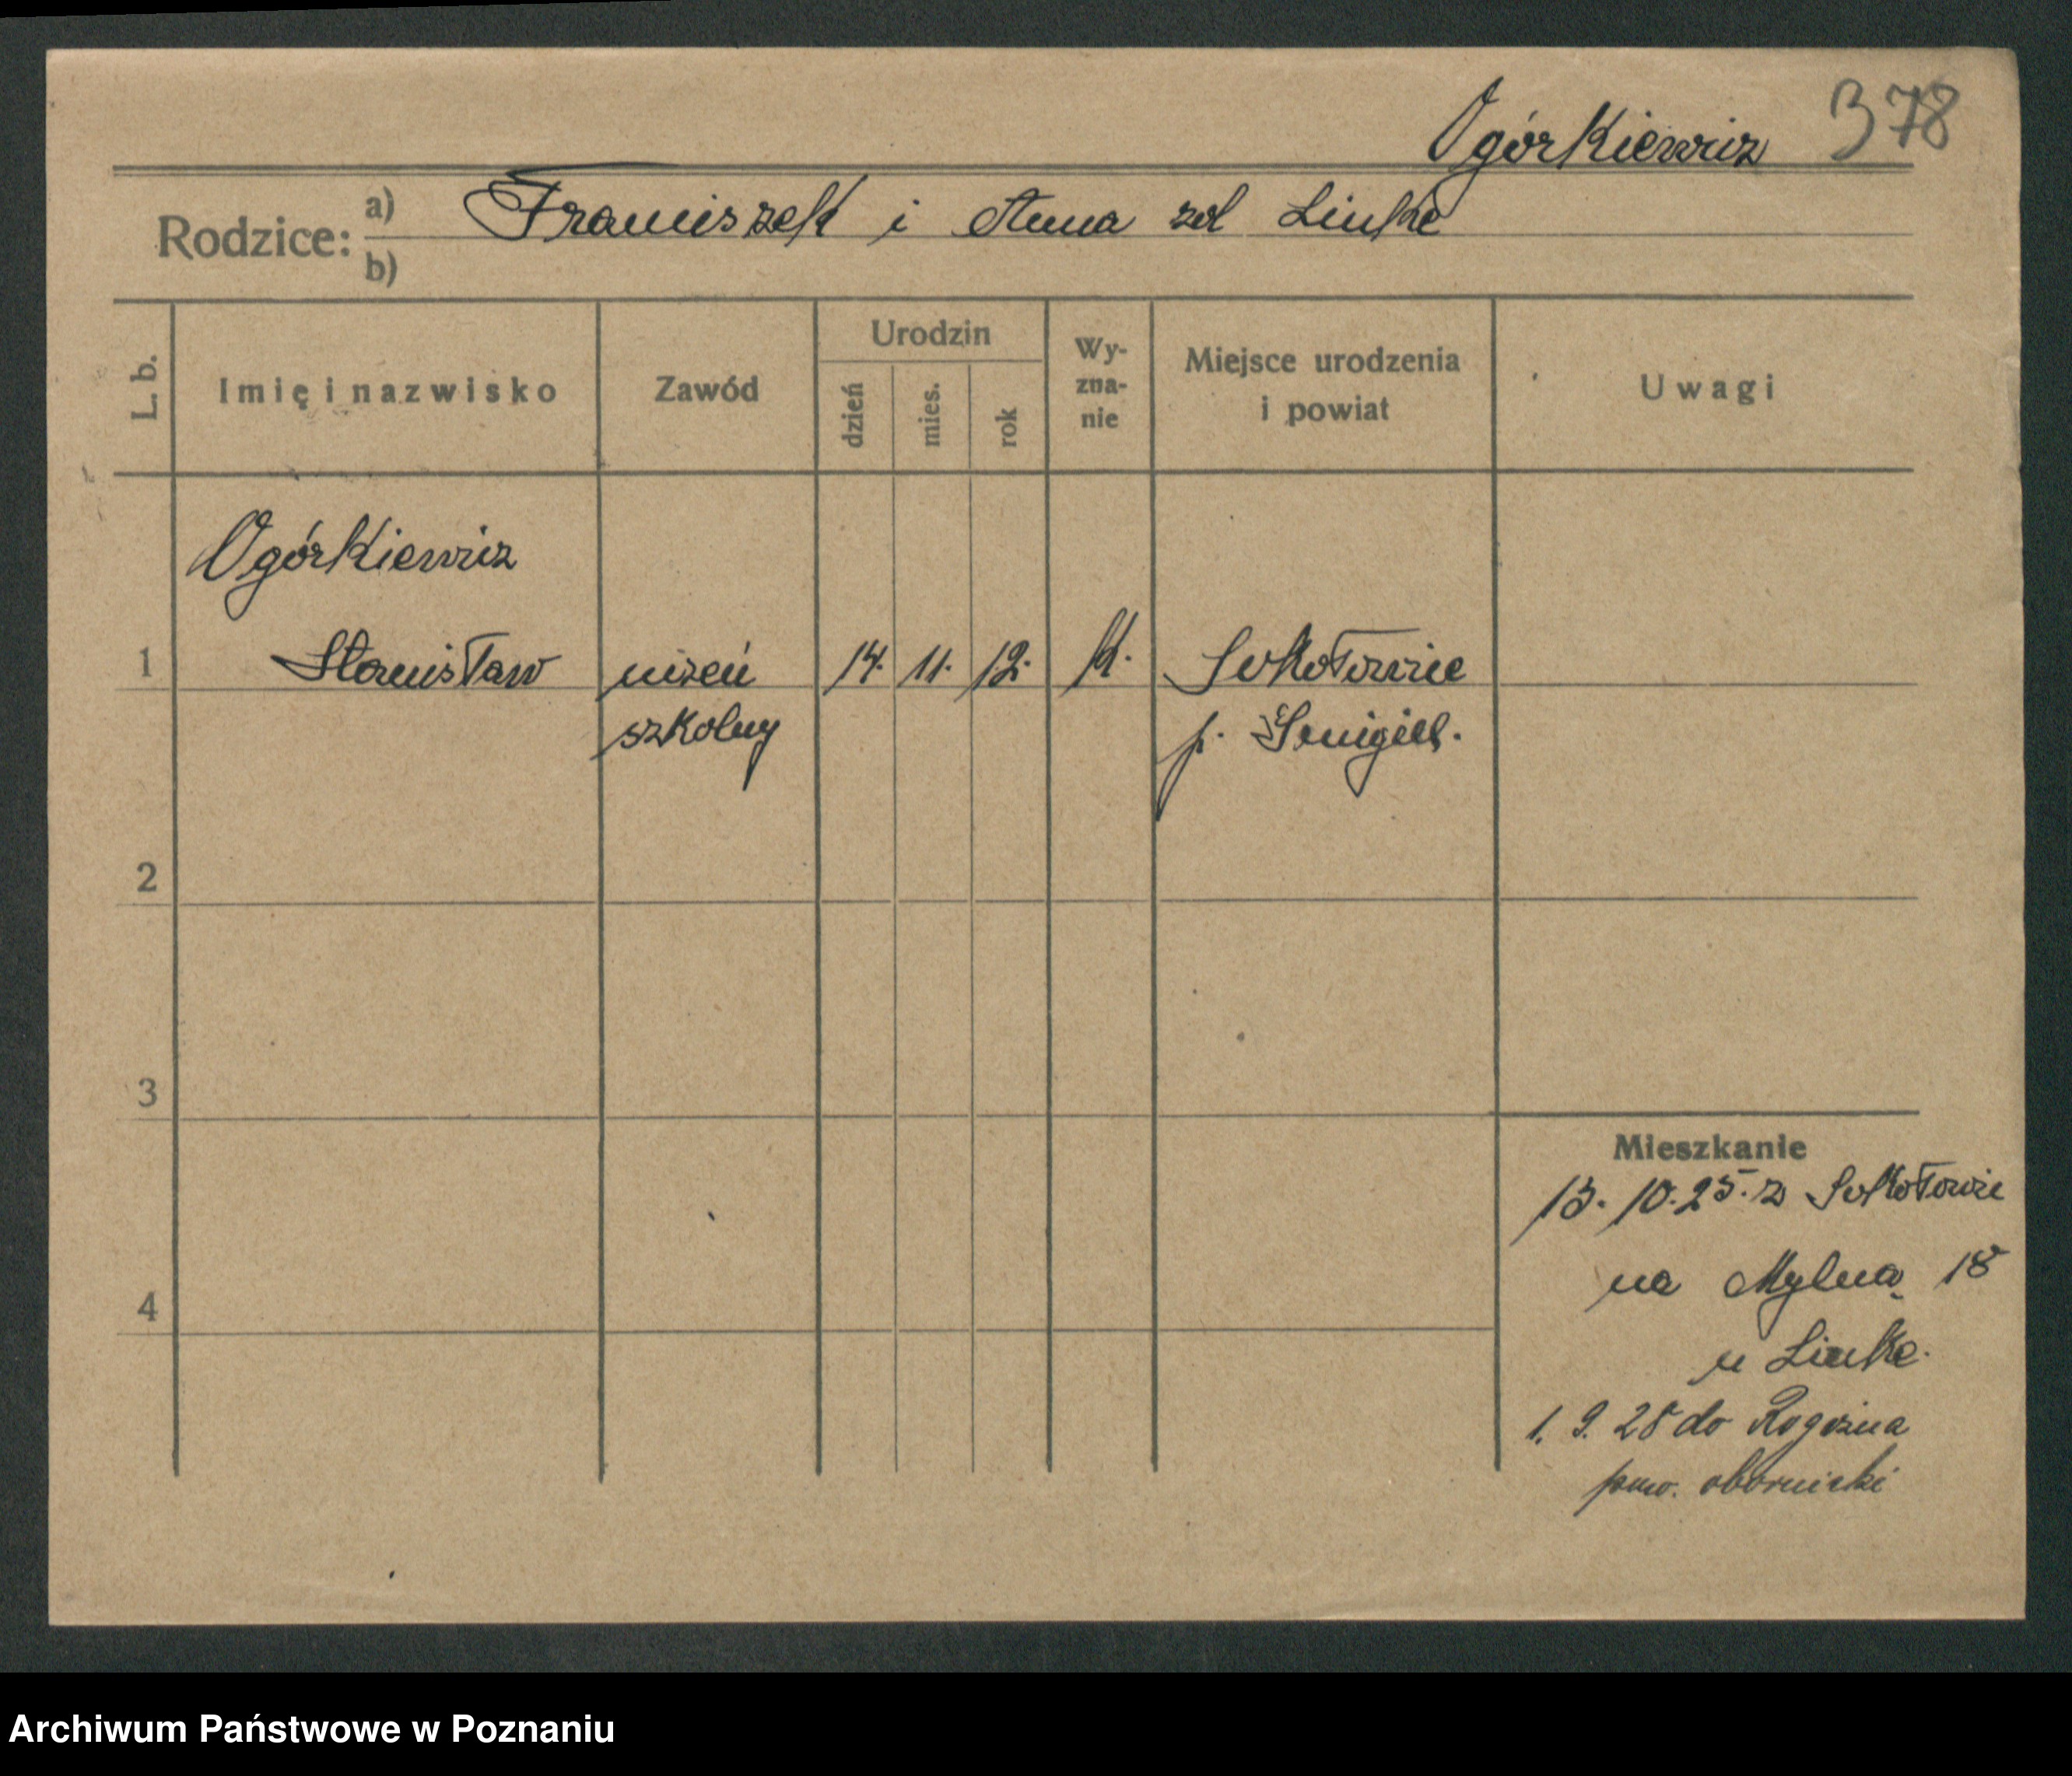 Ogórkiewicz 378
Rodzice: a) Franciszek i Anna zd Linke
b)
L. b. Imię i nazwisko Zawód Urodzin dzień mies. rok Wyznanie Miejsce urodzenia i powiat Uwagi
Ogórkiewicz
1 Stanisław uczeń 14. 11. 12. k. Sokołowice
szkolny p.
2
3
4
Mieszkanie
13. 10. 25. z Sokołowic
na Mylną 18
u Linke.
1. 9. 28 do Rogoźna
pow. obornicki
Archiwum Państwowe w Poznaniu